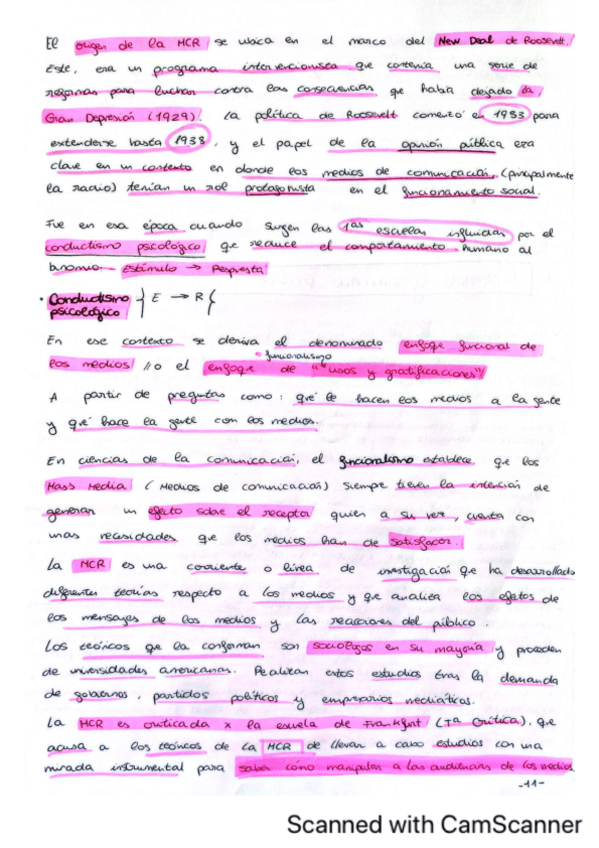 El origen de la MCR se ubica en el marco del New Deal de Roosevelt.
Este, era un programa intervencionista que contenía una serie de
reformas para luchar contra las consecuencias que había dejado la
Gran Depresión (1929). La política de Roosevelt comenzó en 1933 para
extenderse hasta 1938, y el papel de la opinión pública era
clave en un contexto en donde los medios de comunicación, (principalmente
la radio) tenían un rol protagonista en el funcionamiento social.
Fue en esa época cuando surgen las 1as escuelas influidas por el
conductismo psicológico que reduce el comportamiento humano al
binomio Estímulo → Respuesta
· Conductismo psicológico { E → R {
En ese contexto se deriva el denominado enfoque funcional de
funcionalismo
los medios // o el enfoque de "usos y gratificaciones"/
A partir de preguntas como: qué le hacen los medios a la gente
y qué hace la gente con los medios.
En ciencias de la comunicación, el funcionalismo establece que los
Mass Media (Medios de comunicación) siempre tienen la intención de
generar un efecto sobre el receptor quien a su vez, cuenta con
unas necesidades que los medios han de satisfacer.
La MCR es una corriente o línea de investigación que ha desarrollado
diferentes teorías respecto a los medios y que analiza los efectos de
los mensajes de los medios y las reacciones del público.
Los teóricos que la conforman son sociólogos en su mayoría y proceden
de universidades americanas. Realizan estos estudios tras la demanda
de gobiernos, partidos políticos y empresarios mediáticos.
La MCR es criticada x la escuela de Frankfurt (Tª Crítica), que
acusa a los teóricos de la MCR de llevar a cabo estudios con una
mirada instrumental para saber cómo manipular a las audiencias de los medios.
-11-
Scanned with CamScanner